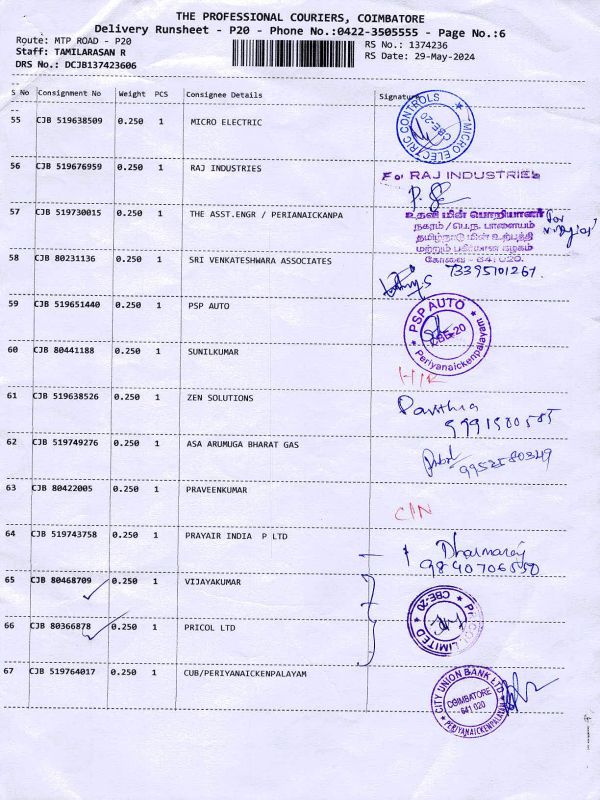 THE PROFESSIONAL COURIERS, COIMBATORE
Delivery Runsheet - P20 - Phone No.:0422-3505555 - Page No.:6
Route: MTP ROAD - P20
RS No.: 1374236
Staff: TAMILARASAN R
RS Date: 29-May-2024
DRS No.: DCJB137423606
S No Consignment No Weight PCS Consignee Details Signature
55 CJB 519638509 0.250 1 MICRO ELECTRIC
MICRO ELECTRIC CONTROLS
CBE-20
56 CJB 519676959 0.250 1 RAJ INDUSTRIES
For RAJ INDUSTRIES
57 CJB 519730015 0.250 1 THE ASST.ENGR / PERIANAICKANPA
உதவி மின் பொறியாளர்
நகரம் / பெ.ந. பாளையம்
தமிழ்நாடு மின் உற்பத்தி
மற்றும் பகிர்மான கழகம்
கோவை - 641 020.
For
58 CJB 80231136 0.250 1 SRI VENKATESHWARA ASSOCIATES
73395101267.
59 CJB 519651440 0.250 1 PSP AUTO
PSP AUTO
CBE-20
Periyanaickenpalayam
60 CJB 80441188 0.250 1 SUNILKUMAR
61 CJB 519638526 0.250 1 ZEN SOLUTIONS
Pavithra
62 CJB 519749276 0.250 1 ASA ARUMUGA BHARAT GAS
9952580349
63 CJB 80422005 0.250 1 PRAVEENKUMAR
C/N
64 CJB 519743758 0.250 1 PRAYAIR INDIA P LTD
Dharmaraj
9840706550
65 CJB 80468709 0.250 1 VIJAYAKUMAR
66 CJB 80366878 0.250 1 PRICOL LTD
Pricol LIMITED
CBE-20
67 CJB 519764017 0.250 1 CUB/PERIYANAICKENPALAYAM
CITY UNION BANK LTD
COIMBATORE
641 020
PERIYANAICKENPALAYAM